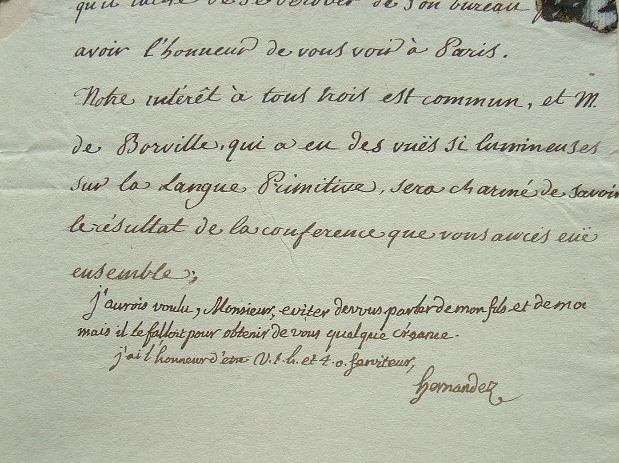 qu'il tâche de se dérober de son bureau
avoir l'honneur de vous voir à Paris.
Notre intérêt à tous trois est commun, et M.
de Borville, qui a eu des vuës si lumineuses
sur la Langue Primitive, sera charmé de savoir
le résultat de la conférence que vous aurés euë
ensemble;
j'aurois voulu, Monsieur, eviter de vous parler de mon fils et de moi
mais il le falloit pour obtenir de vous quelque créance.
j'ai l'honneur d'être V. t. h. et t. o. serviteur,
hernandez